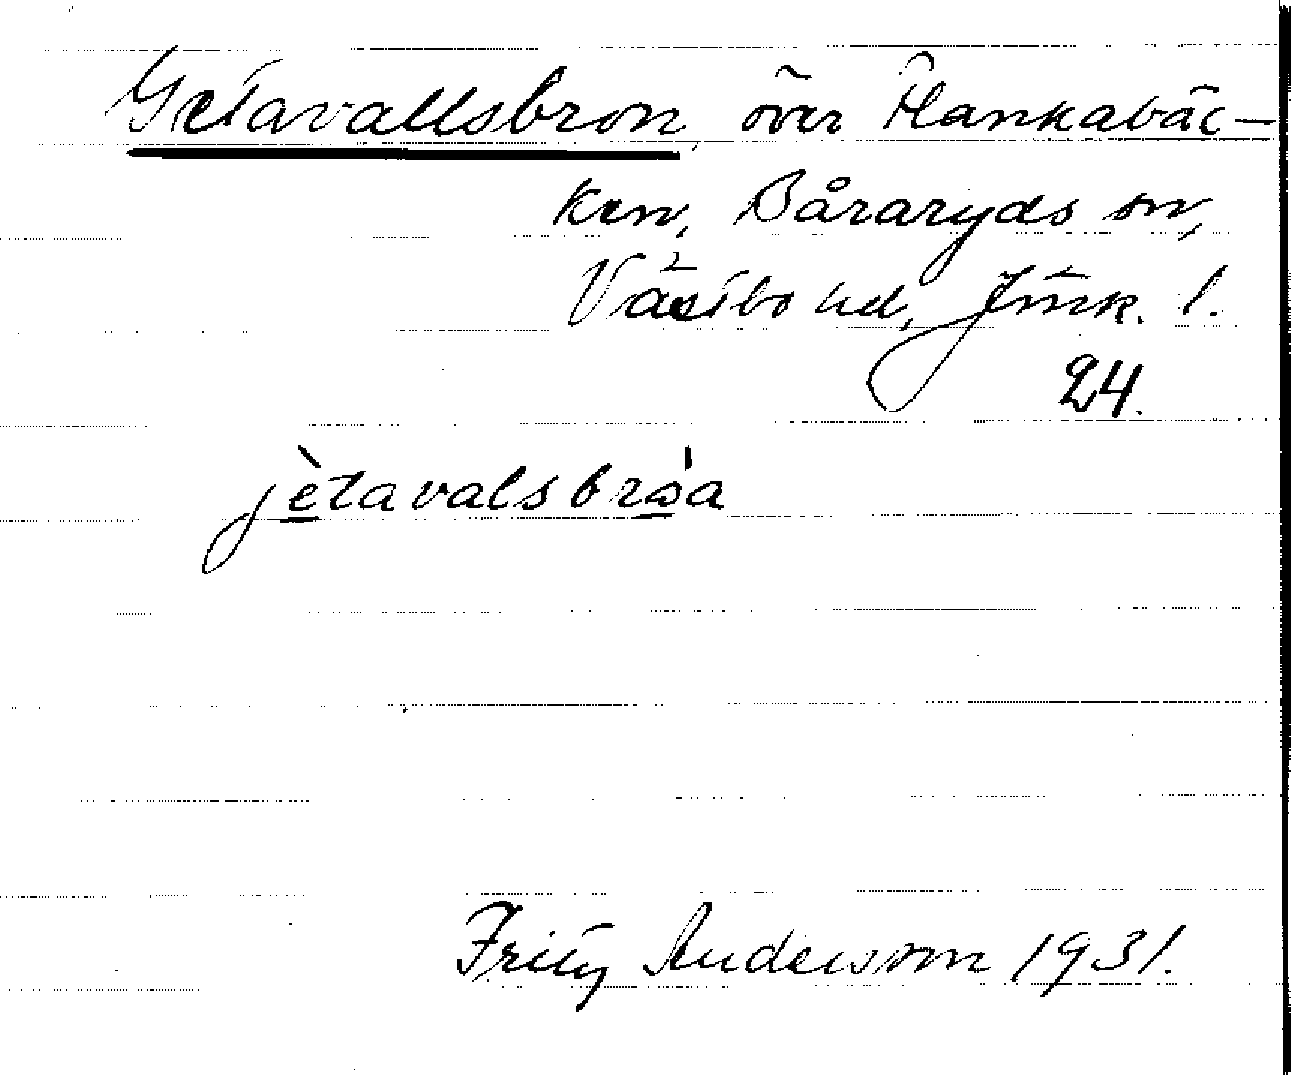 Getavallsbron, över Hankabäc-
ken, Båraryds sn,
Västbo hd, Jönk. l.
24.
jètavalsbròa
Fritz Andersson 1931.